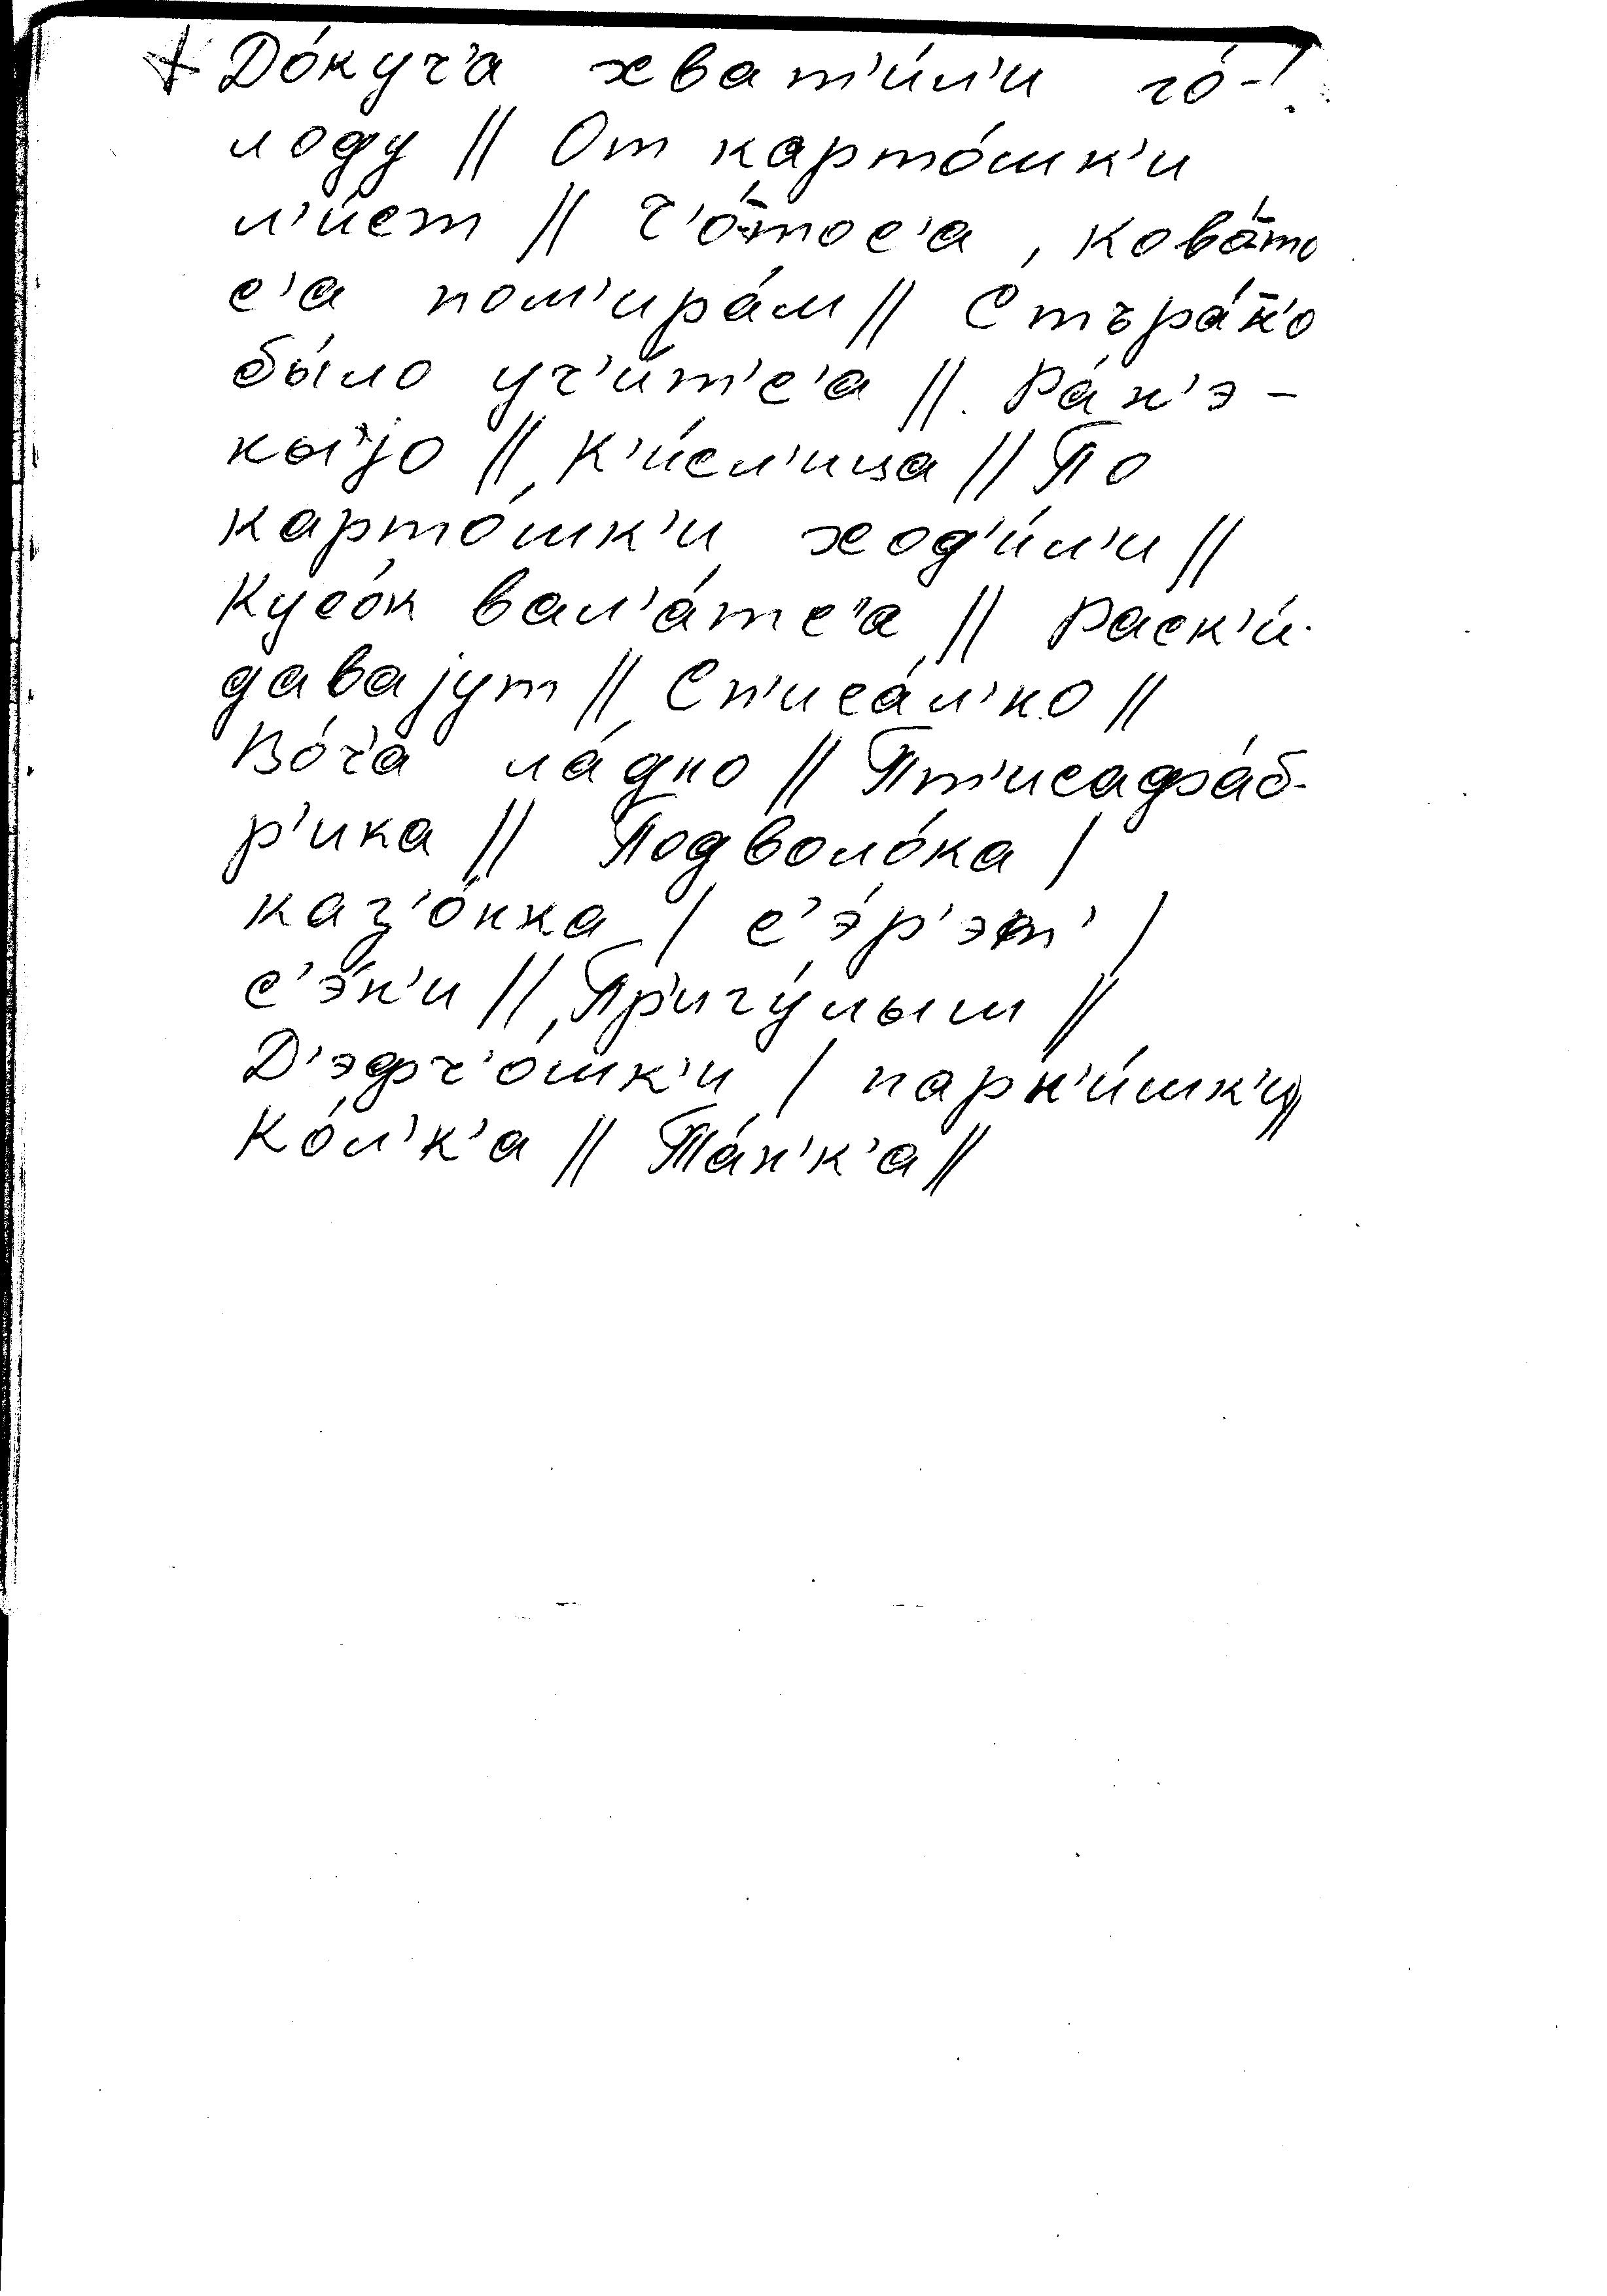 До́куч'а хват'и́л'и го́-
лоду || От карто́шк'и
л'и́ст || Ч'о́тос'а, кова́то
с'а пом'ира́м || Стъра́н'о
бы́ло уч'и́т'с'а || Ра́н'э-
кыjо || К'и́сл'ица || По
карто́шк'и ход'и́л'и ||
Кусо́к вал'а́тс'а || Раск'и́-
давајут || Сп'иса́л'ко ||
Во́ч'а ла́дно || Пт'исафа́б-
р'ика || Подволо́ка |
каз'о́нка | с'э́р'эт' |
с'э́н'и || Пр'игу́лыш ||
Д'эфч'о́шк'и | парн'и́шк'и ||
Ко́л'к'а || Та́н'к'а ||